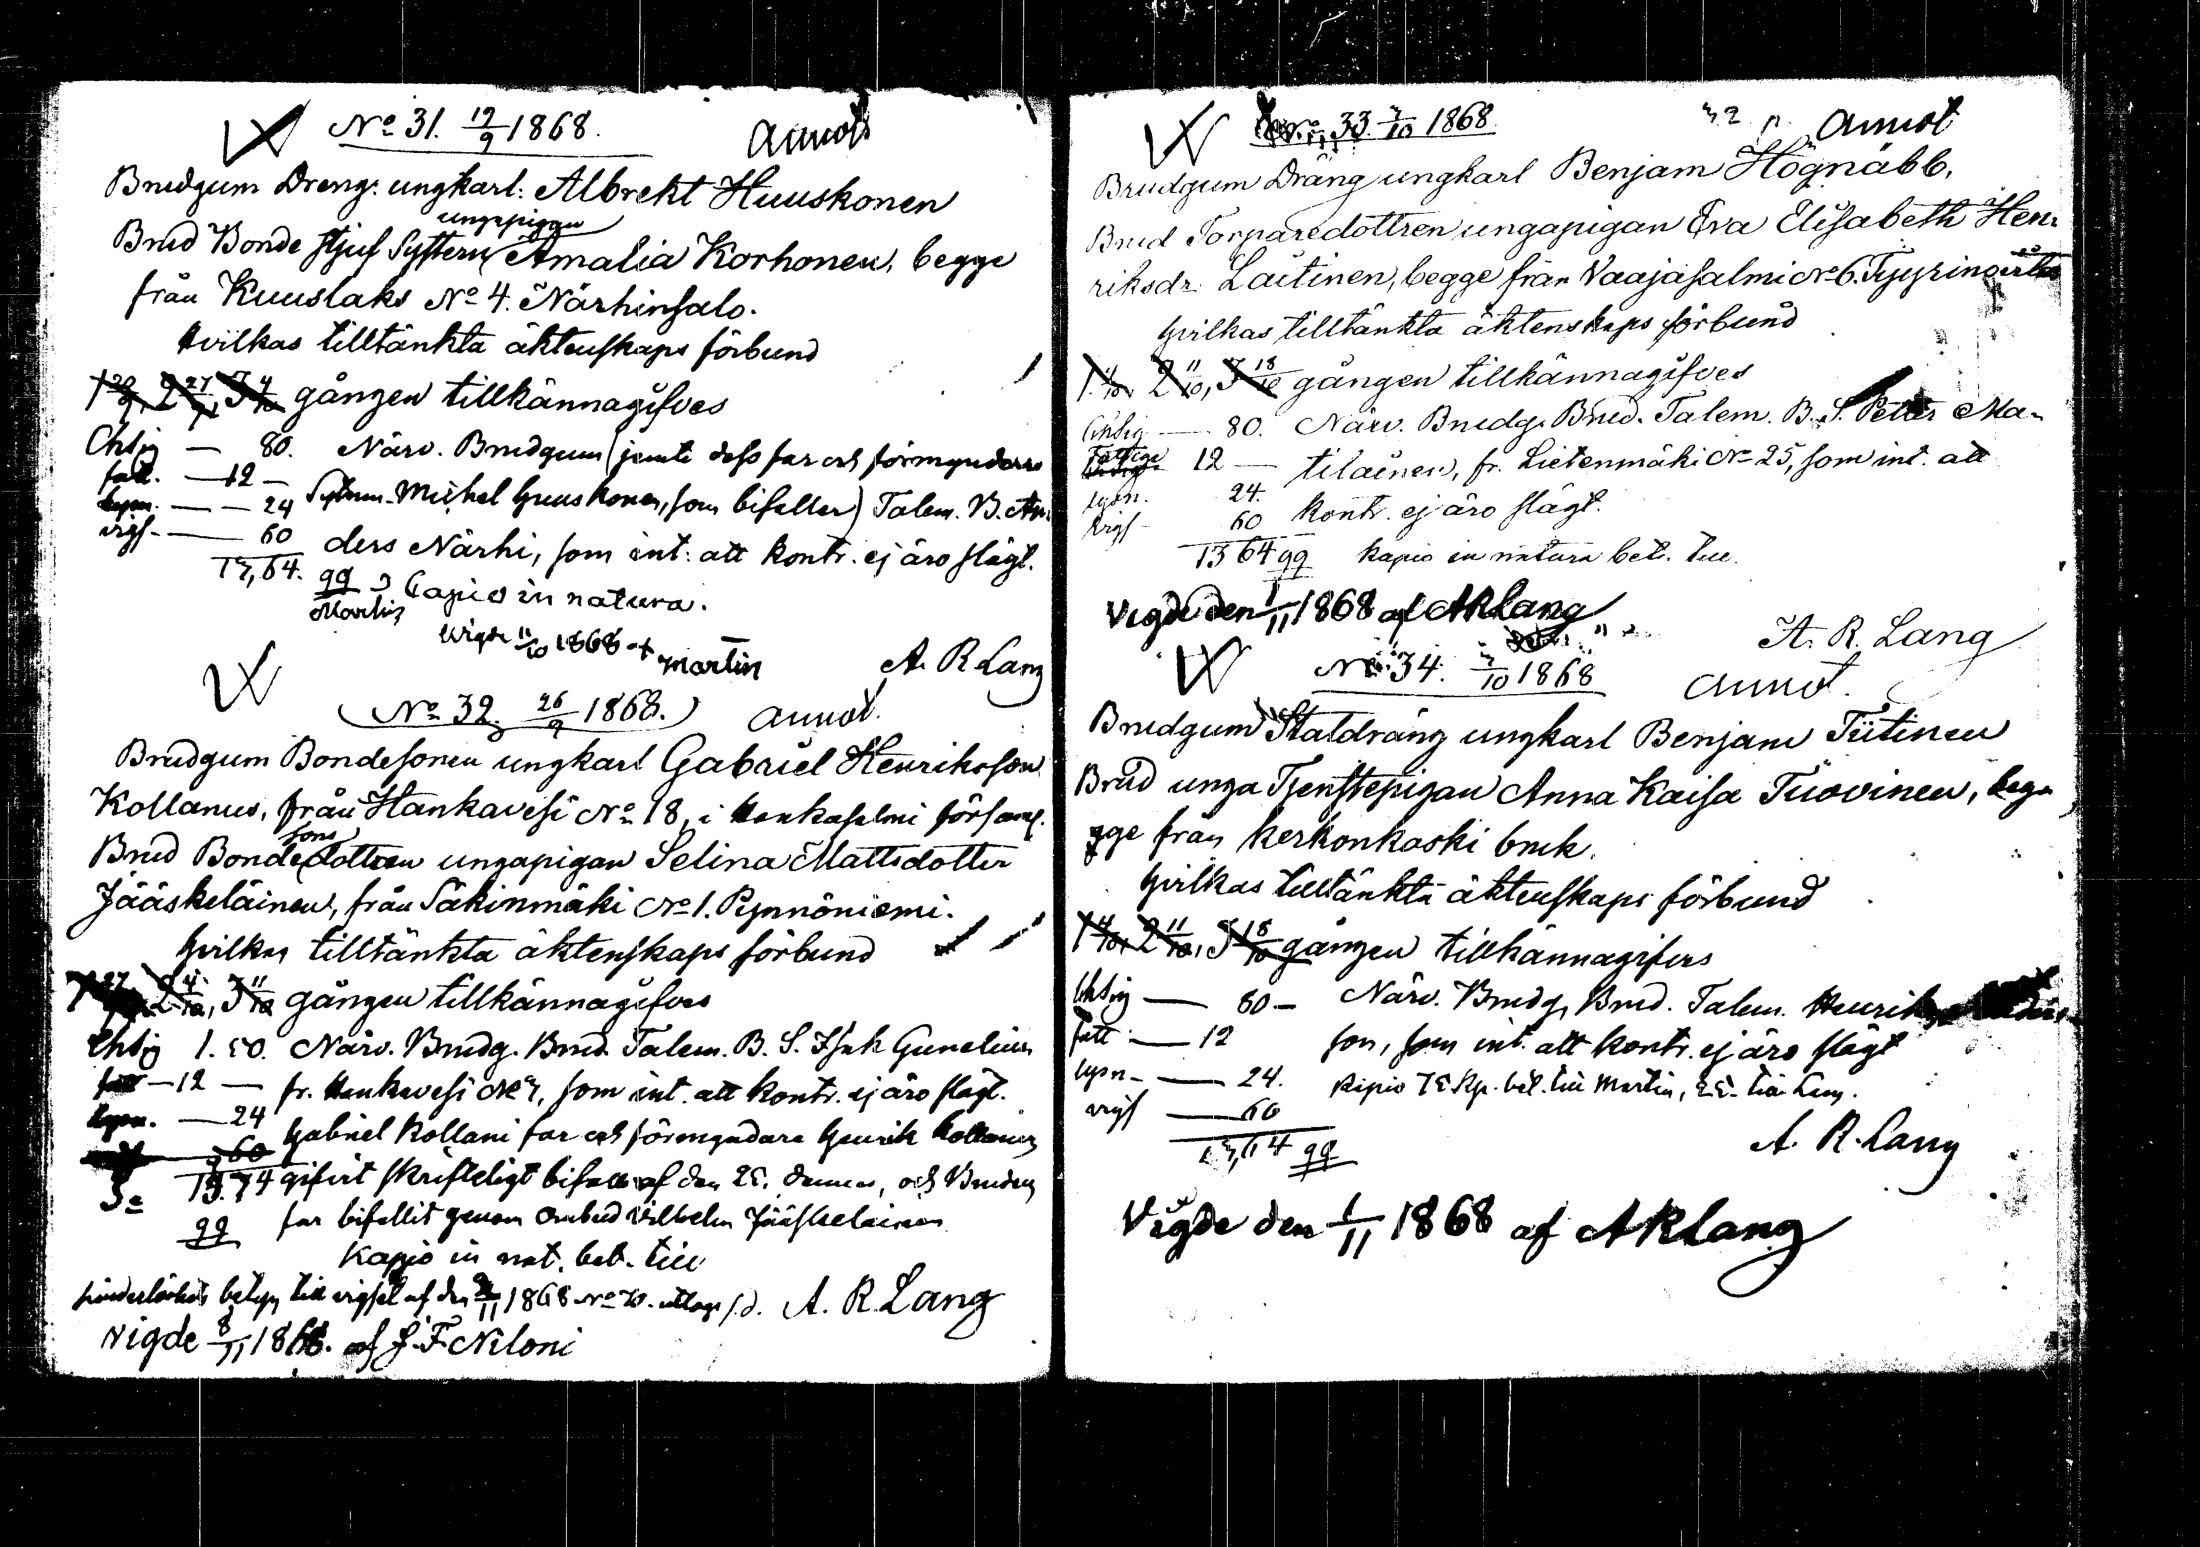 No 31. 19/9 1868. Annot
Brudgum Dreng: ungkarl: Albrekt Huuskonen
ungapigan
Brud Bonde stjuf Systern Amalia Korhonen, begge
från Kuuslaks No 4. Närhinsalo.
Hvilkas tilltänkta äktenskaps förbund
1 20/9, 2 27/9, 3 4/10 gången tillkännagifves
Chsig — 80. Närv. Brudgum (jemte dess far och förmyndare
fatt. — 12 —
lysn. — 24 Sytnm. Michel Huuskonen, som bifaller) Talem. B. An-
vigs. — 60 ders Närhi, som int: att kontr. ej äro slägt.
13,64. gg Capio in natura.
Martin
Vigde 11/10 1868 af Martin
A. R. Lang
No 32. 26/9 1868. Annot.
Brudgum Bondesonen ungkarl Gabriel Henriksson
Kollanus, från Hankavesi No 18, i Hankasalmi församl.
sons
Brud Bondedottren ungapigan Selina Mattsdotter
Jääskeläinen, från Säkinmäki No 1. Pynnöniemi.
Hvilkas tilltänkta äktenskaps förbund
1 27/9, 2 4/10, 3 11/10 gången tillkännagifves
Chsig 1. 50. Närv. Brudg. Brud. Talem. B. S. Isak Gunelius
fatt — 12 — fr. Hankavesi No 3, som int. att kontr. ej äro slägt.
lysn. — 24
Gabriel Kollani far och förmyndare Henrik Kollanus
60
gifvit skrifteligt bifall af den 25. dennes, och Brudens
gg far bifallit genom ombud Vilhelm Jääskeläinen
Kapio in nat. bet. till
hinderlöshets betyg till vigsel af den 2/11 1868 No 70. uttags s.d. A. R. Lang
vigde 8/11 1868. af J. F. Niloni
No 33. 3/10 1868. Annot
Brudgum Dräng ungkarl Benjam Högnäbb,
Brud Torparedottren ungapigan Eva Elisabeth Hen-
riksdr. Laitinen, begge från Vaajasalmi No 6.
Hvilkas tilltänkta äktenskaps förbund
1 4/10, 2 11/10, 3 18/10 gången tillkännagifves
Chsig — 80. Närv. Brudg. Brud. Talem. B. S. Petter Ma-
Fattige 12 — tilainen, fr. Lietenmäki No 25, som int. att
lysn. 24. kontr. ej äro slägt.
vigs 60
13 64 gg kapio in natura bet. till
Vigde den 1/11 1868 af A R Lang
A. R. Lang
No 34. 3/10 1868 Annot.
Brudgum Staldräng ungkarl Benjam Tiitinen
Brud unga Tjenstepigan Anna Kaisa Tuovinen, beg-
gge från Kerkonkoski bruk.
Hvilkas tilltänkta äktenskaps förbund
1 4/10, 2 11/10, 3 18/10 gången tillkännagifves
Chsig — 80 — Närv. Brudg. Brud. Talem. Henrik
fatt — 12 son, som int. att kontr. ej äro slägt
lysn — 24. kapio 75 kp. bet. till Martin, 25. till Lang.
vigs — 60
13,64 gg
A. R. Lang
Vigde den 1/11 1868 af A R Lang